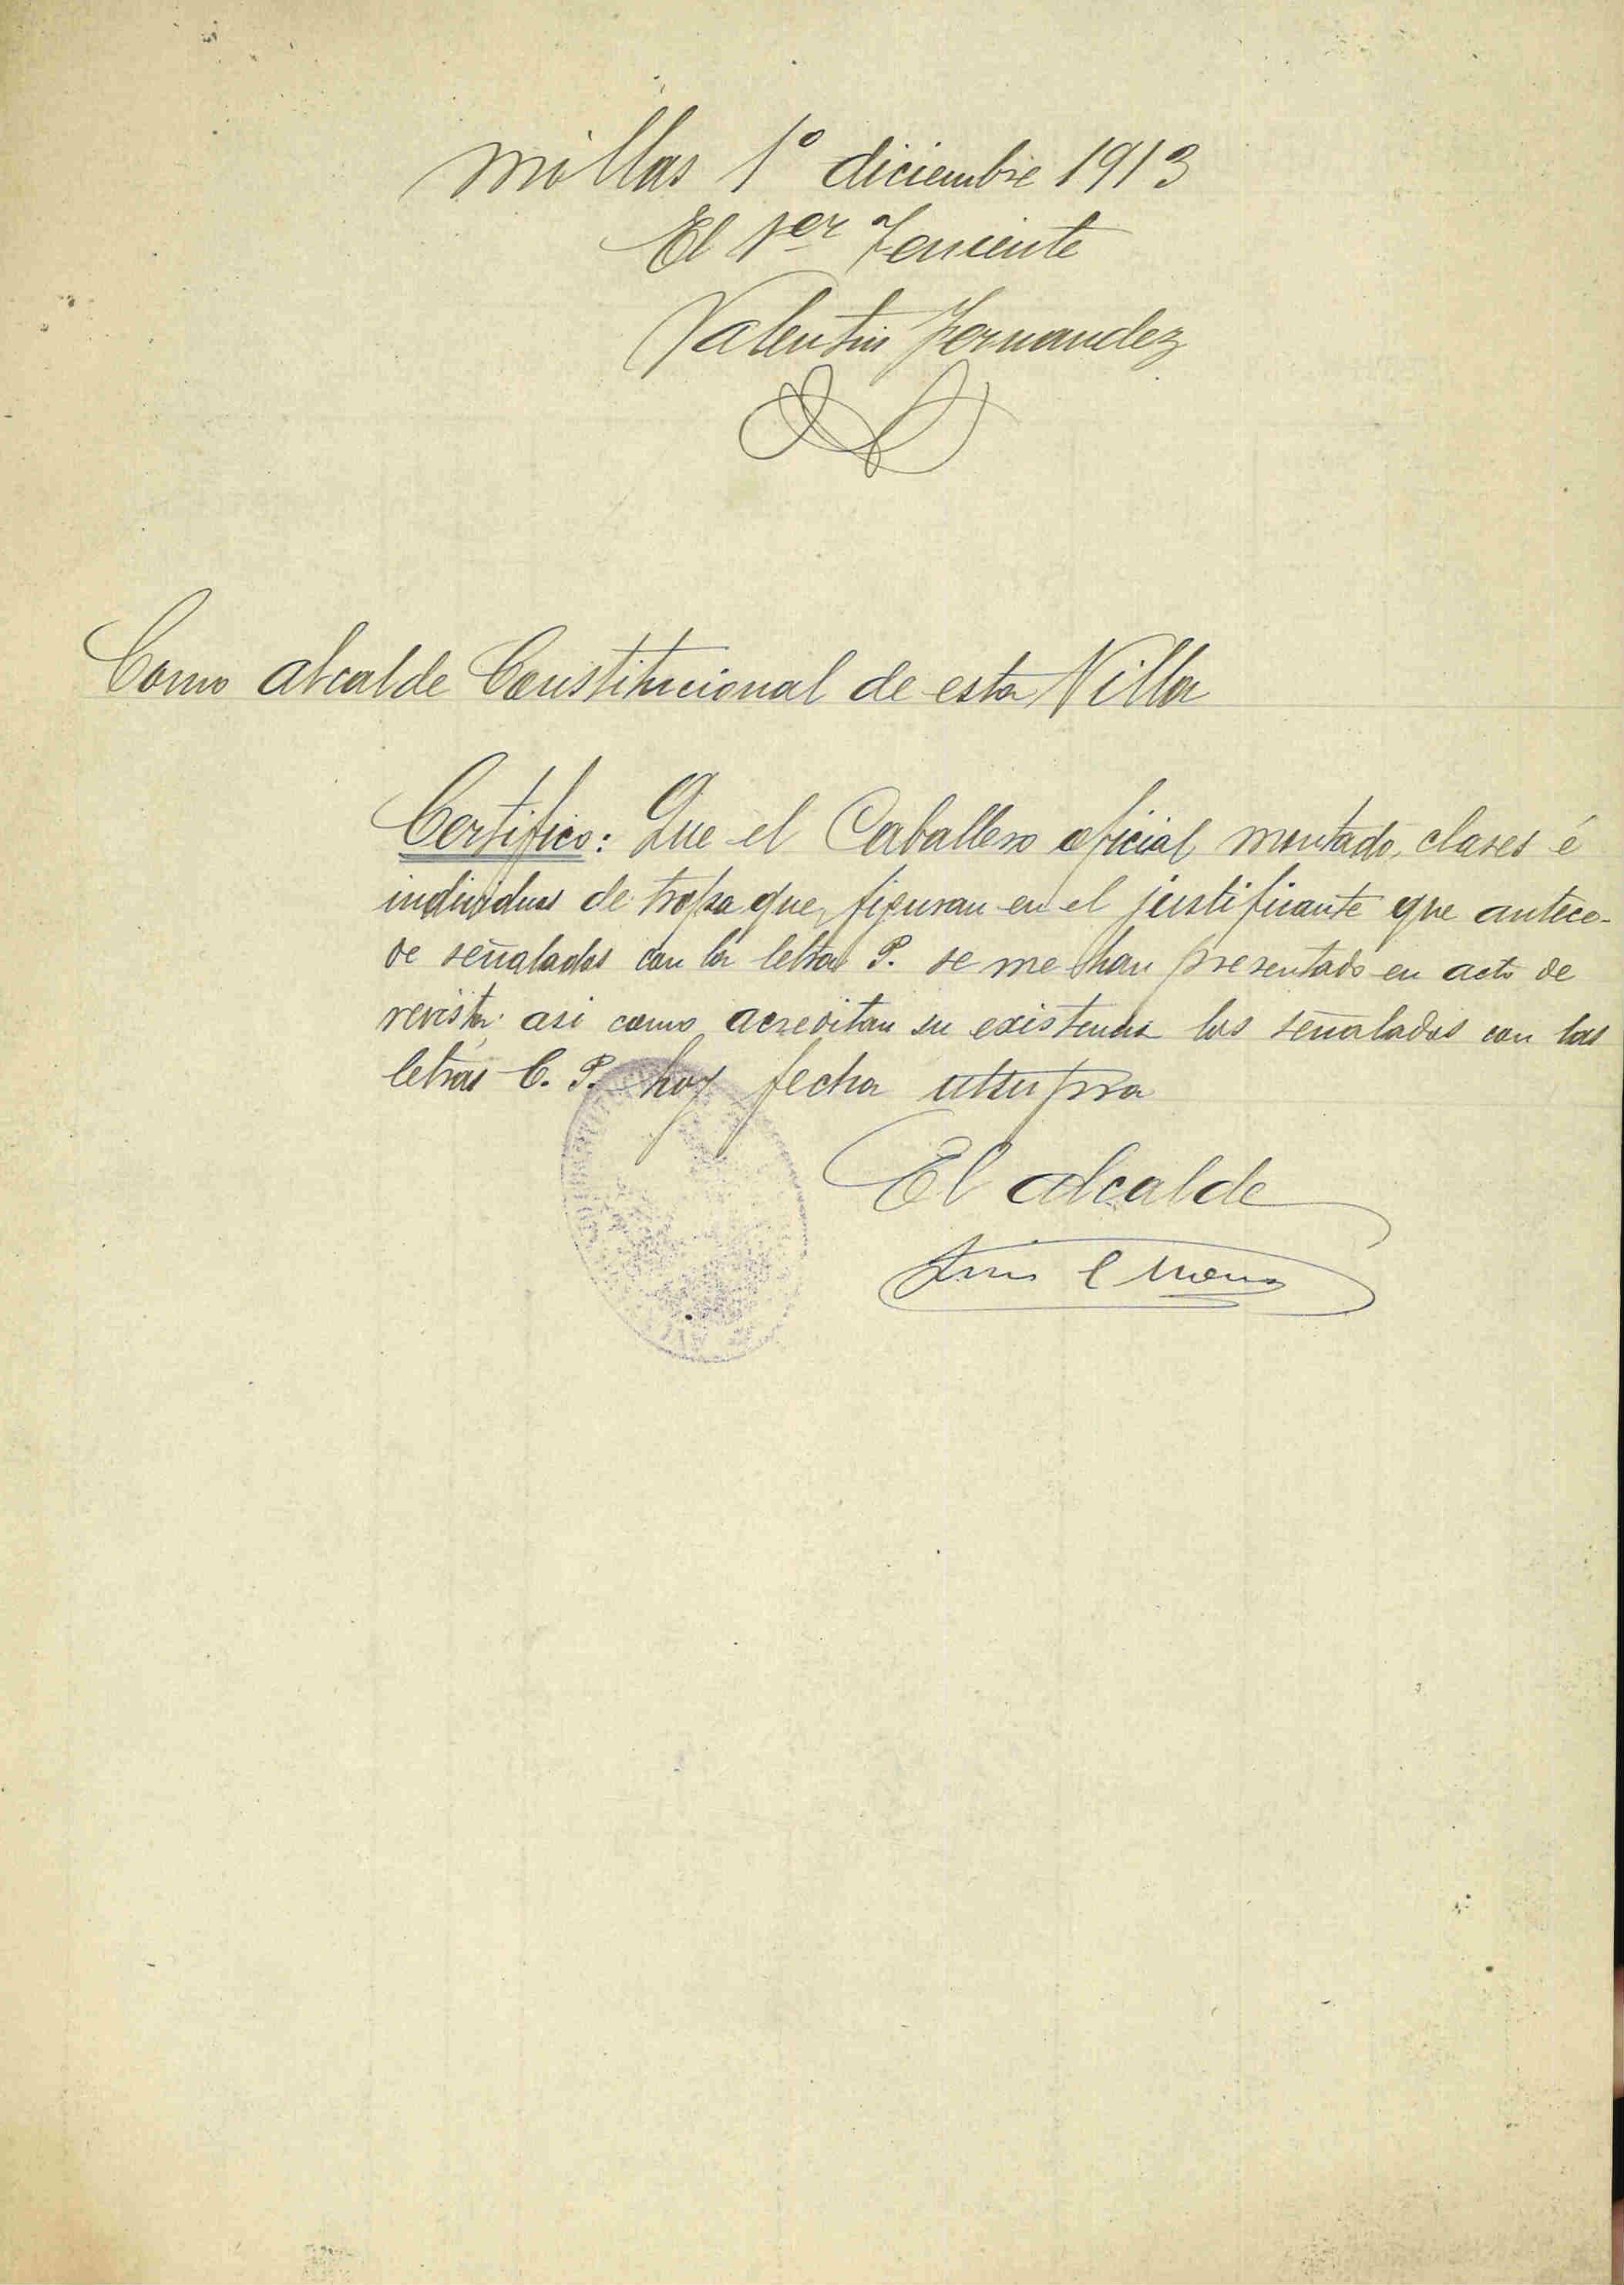 Millas 1º diciembre 1913
El 1er Teniente
Valentin Fernandez
Como alcalde Constitucional de esta Villa
Certifico: Que el Caballero oficial montado, clases é
individuos de tropa que figuran en el justificante que antece-
de señalados con la letra P. se me han presentado en acto de
revista; asi como acreditan su existencia los señalados con las
letras C. P. hoy fecha utsupra
El alcalde
Luis